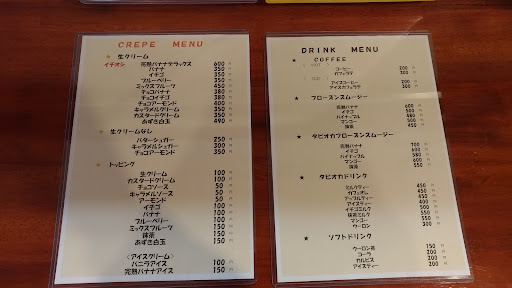 CREPE MENU
★ 生クリーム
イチオシ 完熟バナナデラックス 600円
バナナ 350円
イチゴ 350円
ブルーベリー 350円
ミックスフルーツ 450円
チョコバナナ 380円
チョコイチゴ 380円
チョコアーモンド 400円
キャラメルクリーム 350円
カスタードクリーム 350円
あずき白玉 490円
★ 生クリームなし
バターシュガー 250円
キャラメルシュガー 300円
チョコアーモンド 350円
★ トッピング
生クリーム 100円
カスタードクリーム 100円
チョコソース 50円
キャラメルソース 50円
アーモンド 50円
イチゴ 100円
バナナ 100円
ブルーベリー 100円
ミックスフルーツ 150円
抹茶 150円
あずき白玉 150円
〈アイスクリーム〉
バニラアイス 100円
完熟バナナアイス 150円
DRINK MENU
★ COFFEE
コーヒー 200円
カフェラテ 300円
アイスコーヒー 200円
アイスカフェラテ 300円
★ フローズンスムージー
完熟バナナ 600円
イチゴ 500円
パイナップル 580円
マンゴー 500円
抹茶 550円
★ タピオカフローズンスムージー
完熟バナナ 700円
イチゴ 600円
パイナップル
マンゴー 600円
抹茶
★ タピオカドリンク
ミルクティー 450円
カフェオレ 450円
アップルティー 450円
アイスティー 400円
イチゴミルク 550円
抹茶ミルク 500円
マンゴー 550円
ウーロン 300円
★ ソフトドリンク
ウーロン茶 150円
コーラ 200円
カルピス 200円
アイスティー 200円